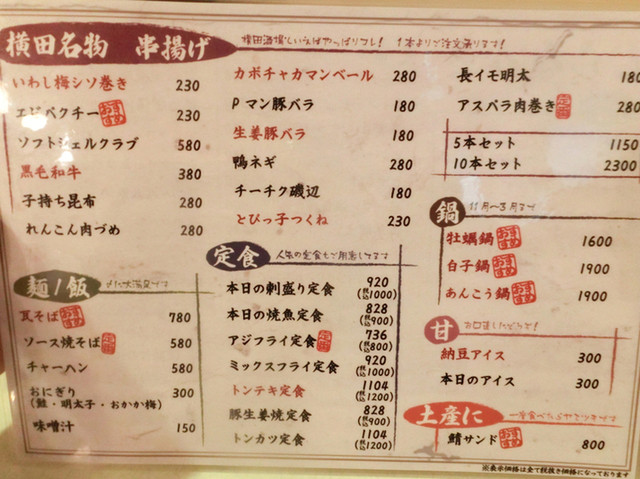 横田名物 串揚げ
横田酒場といえばやっぱりコレ! 1本よりご注文承ります!
いわし梅シソ巻き 230
エジペクチー おすすめ 230
ソフトシェルクラブ 580
黒毛和牛 380
子持ち昆布 280
れんこん肉づめ 280
カボチャカマンベール 280
Pマン豚バラ 180
生姜豚バラ 180
鴨ネギ 280
チーチク磯辺 180
とびっ子つくね 230
長イモ明太 180
アスパラ肉巻き 280
5本セット 1150
10本セット 2300
鍋 11月〜3月まで
牡蠣鍋 おすすめ 1600
白子鍋 おすすめ 1900
あんこう鍋 おすすめ 1900
麺/飯
瓦そば おすすめ 780
ソース焼そば 580
チャーハン 580
おにぎり 300
(鮭・明太子・おかか梅)
味噌汁 150
定食 人気の定食もご用意してます
本日の刺盛り定食 920
(税込1000)
本日の焼魚定食 828
(税込900)
アジフライ定食 736
(税込800)
ミックスフライ定食 920
(税込1000)
トンテキ定食 1104
(税込1200)
豚生姜焼定食 828
(税込900)
トンカツ定食 1104
(税込1200)
甘 お口直しにどうぞ!
納豆アイス 300
本日のアイス 300
土産に
鯖サンド おすすめ 800
※表示価格は全て税抜き価格になっております